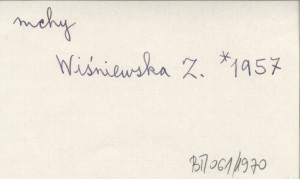 mchy
Wiśniewska Z. *1957
BT/061/1970